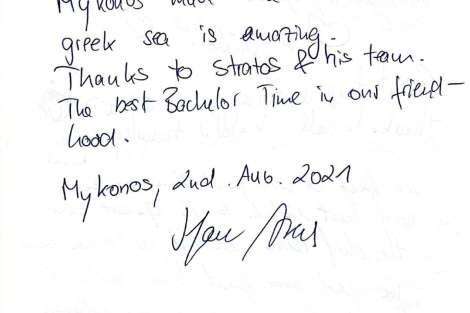 Mykonos
greek sea is amazing.
Thanks to Stratos & his team.
The best Bachelor Time in our friend-
hood.
Mykonos, 2nd. Aug. 2021